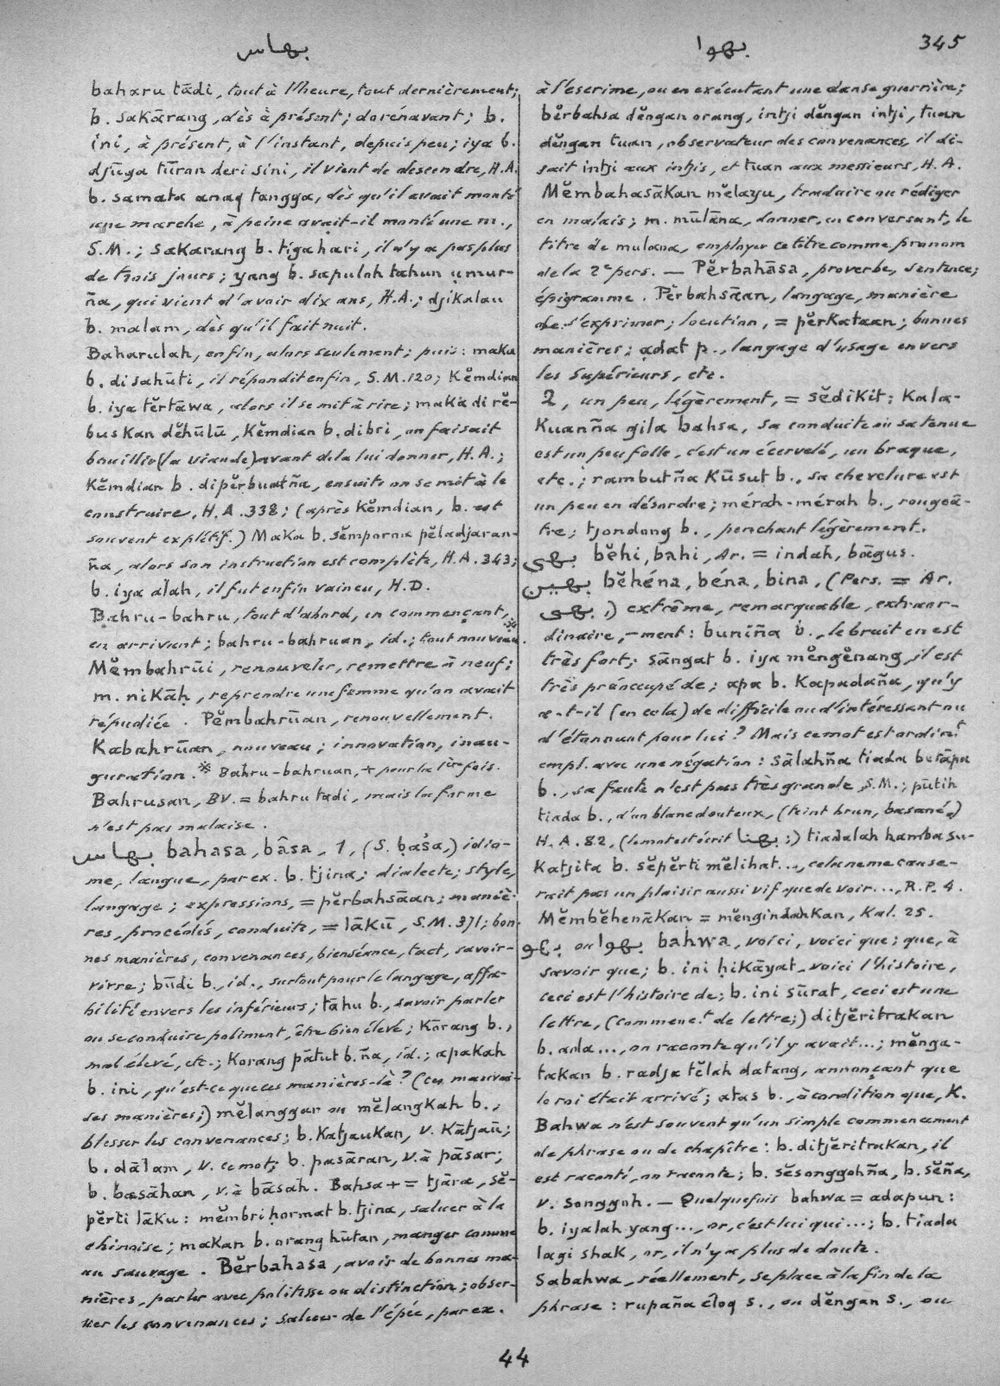 بهاس
بهوا
345
baharu tādi, tout à l'heure, tout dernièrement;
b. sakārang, dès à présent; dorénavant; b.
ini, à présent, à l'instant, depuis peu; iya b.
djūga tūran deri sini, il vient de descendre, H.A.
b. samata anaq tangga, dès qu'il avait monté
une marche, à peine avait-il monté une m.,
S.M.; sakarang b. tiga hari, il n'y a pas plus
de trois jours; yang b. sapulah tahun umur-
ña, qui vient d'avoir dix ans, H.A.; djikalau
b. malam, dès qu'il fait nuit.
Baharulah, enfin, alors seulement; puis: maka
b. disahūti, il répondit enfin, S.M.120; kĕmdian
b. iya tĕrtāwa, alors il se mit à rire; maka di rĕ-
buskan dĕhūlū, kĕmdian b. dibri, on faisait
bouillir (la viande) avant de la lui donner, H.A.;
kĕmdian b. dipĕrbuatña, ensuite on se mit à le
construire, H.A. 338; (après kĕmdian, b. est
souvent explétif.) Maka b. sĕmporna pĕladjaran-
ña, alors son instruction est complète, H.A. 343;
b. iya alah, il fut enfin vaincu, H.D.
Bahru-bahru, tout d'abord, en commençant,
en arrivant; bahru-bahruan, id.; tout nouveau.※
Mĕmbahrūi, renouveler, remettre à neuf;
m. nikāḥ, reprendre une femme qu'on avait
répudiée. Pĕmbahrūan, renouvellement.
Kabahrūan, nouveau; innovation, inau-
guration. ※ Bahru-bahruan, + pour la 1ère fois.
Bahrusan, BV. = bahru tadi, mais la forme
n'est pas malaise.
بهاس bahasa, bāsa, 1, (S. baśa,) idio-
me, langue, par ex. b. tjina; dialecte; style,
langage; expressions, = pĕrbahsāan; maniè-
res, procédés, conduite, = lākū, S.M. 371; bon-
nes manières, convenances, bienséance, tact, savoir-
vivre; būdi b., id., surtout pour le langage, affa-
bilité envers les inférieurs; tāhu b., savoir parler
ou se conduire poliment, être bien élevé; kōrang b.,
mal élevé, etc.; korang pātut b.ña, id.; apakah
b. ini, qu'est-ce que ces manières-là? (ces mauvai-
ses manières;) mĕlanggar ou mĕlangkah b.,
blesser les convenances; b. katjaukan, v. kātjau;
b. dālam, v. ce mot; b. pasāran, v. à pāsar;
b. basāhan, v. à bāsah. Bahsa + = tjāra, sĕ-
pĕrti lāku: mĕmbri hormat b. tjina, saluer à la
chinoise; makan b. orang hūtan, manger comme
un sauvage. Bĕrbahasa, avoir de bonnes ma-
nières, parler avec politesse ou distinction; obser-
ver les convenances; saluer de l'épée, par ex.
à l'escrime, ou en exécutant une danse guerrière;
bĕrbahsa dĕngan orang, intji dĕngan intji, tuan
dĕngan tuan, observateur des convenances, il di-
sait intji aux intjis, et tuan aux messieurs, H.A.
Mĕmbahasākan mĕlayu, traduire ou rédiger
en malais; m. mūlāna, donner, en conversant, le
titre de mulana, employer ce titre comme pronom
de la 2e pers. — Pĕrbahāsa, proverbe, sentence;
épigramme. Pĕrbahsāan, langage, manière
de s'exprimer; locution, = pĕrkataan; bonnes
manières; adat p., langage d'usage envers
les supérieurs, etc.
2, un peu, légèrement, = sĕdikit: kala-
kuanña gila bahsa, sa conduite ou sa tenue
est un peu folle, c'est un écervelé, un braque,
etc.; rambutña kūsut b., sa chevelure est
un peu en désordre; mérah-mérah b., rougeâ-
tre; tjondong b., penchant légèrement.
بهي bĕhi, bahi, Ar. = indah, bāgus.
بهين bĕhéna, béna, bina, (Pers. = Ar.
بهي;) extrême, remarquable, extraor-
dinaire, -ment: buniña b., le bruit en est
très fort; sāngat b. iya mĕngĕnang, il est
très préoccupé de; apa b. kapadaña, qu'y
a-t-il (en cela) de difficile ou d'intéressant ou
d'étonnant pour lui? Mais ce mot est ordin.t
empl. avec une négation: sālahña tiada berāpa
b., sa faute n'est pas très grande, S.M.; pūtih
tiada b., d'un blanc douteux, (teint brun, basané,)
H.A. 82, (le mot est écrit بهنا;) tiadalah hamba su-
katjita b. sĕpĕrti mĕlihat..., cela ne me cause-
rait pas un plaisir aussi vif que de voir..., R.P. 4.
Mĕmbĕhenākan = mĕngindahkan, Kal. 25.
بهو ou بهوا bahwa, voici, voici que; que, à
savoir que; b. ini ḥikāyat, voici l'histoire,
ceci est l'histoire de; b. ini sūrat, ceci est une
lettre, (commenc.t de lettre;) ditjĕritrakan
b. ada..., on raconte qu'il y avait...; mĕnga-
takan b. radja tĕlah datang, annonçant que
le roi était arrivé; atas b., à condition que, K.
Bahwa n'est souvent qu'un simple commencement
de phrase ou de chapitre: b. ditjĕritrakan, il
est raconté, on raconte; b. sĕsonggohña, b. sĕña,
v. songgoh. — Quelquefois bahwa = adapun:
b. iyalah yang..., or, c'est lui qui...; b. tiada
lagi shak, or, il n'y a plus de doute.
Sabahwa, réellement, se place à la fin de la
phrase: rupaña éloq s., ou dĕngan s., ou
44